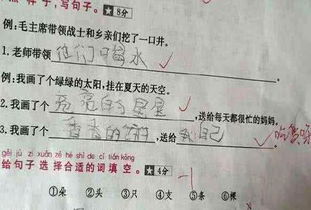 样子,写句子。★8分
例:毛主席带领战士和乡亲们挖了一口井。
1.老师带领他们喝水
例:我画了个绿绿的太阳,挂在夏天的天空。
2.我画了个亮亮的星星,送给每天都很忙的妈妈。
3.我画了个香香的,送给我自己
gěi jù zi xuǎn zé hé shì de cí tián kòng
给句子选择合适的词填空。★4分 -1
①朵 ②头 ③只 ④支 ⑤条 ⑥棵